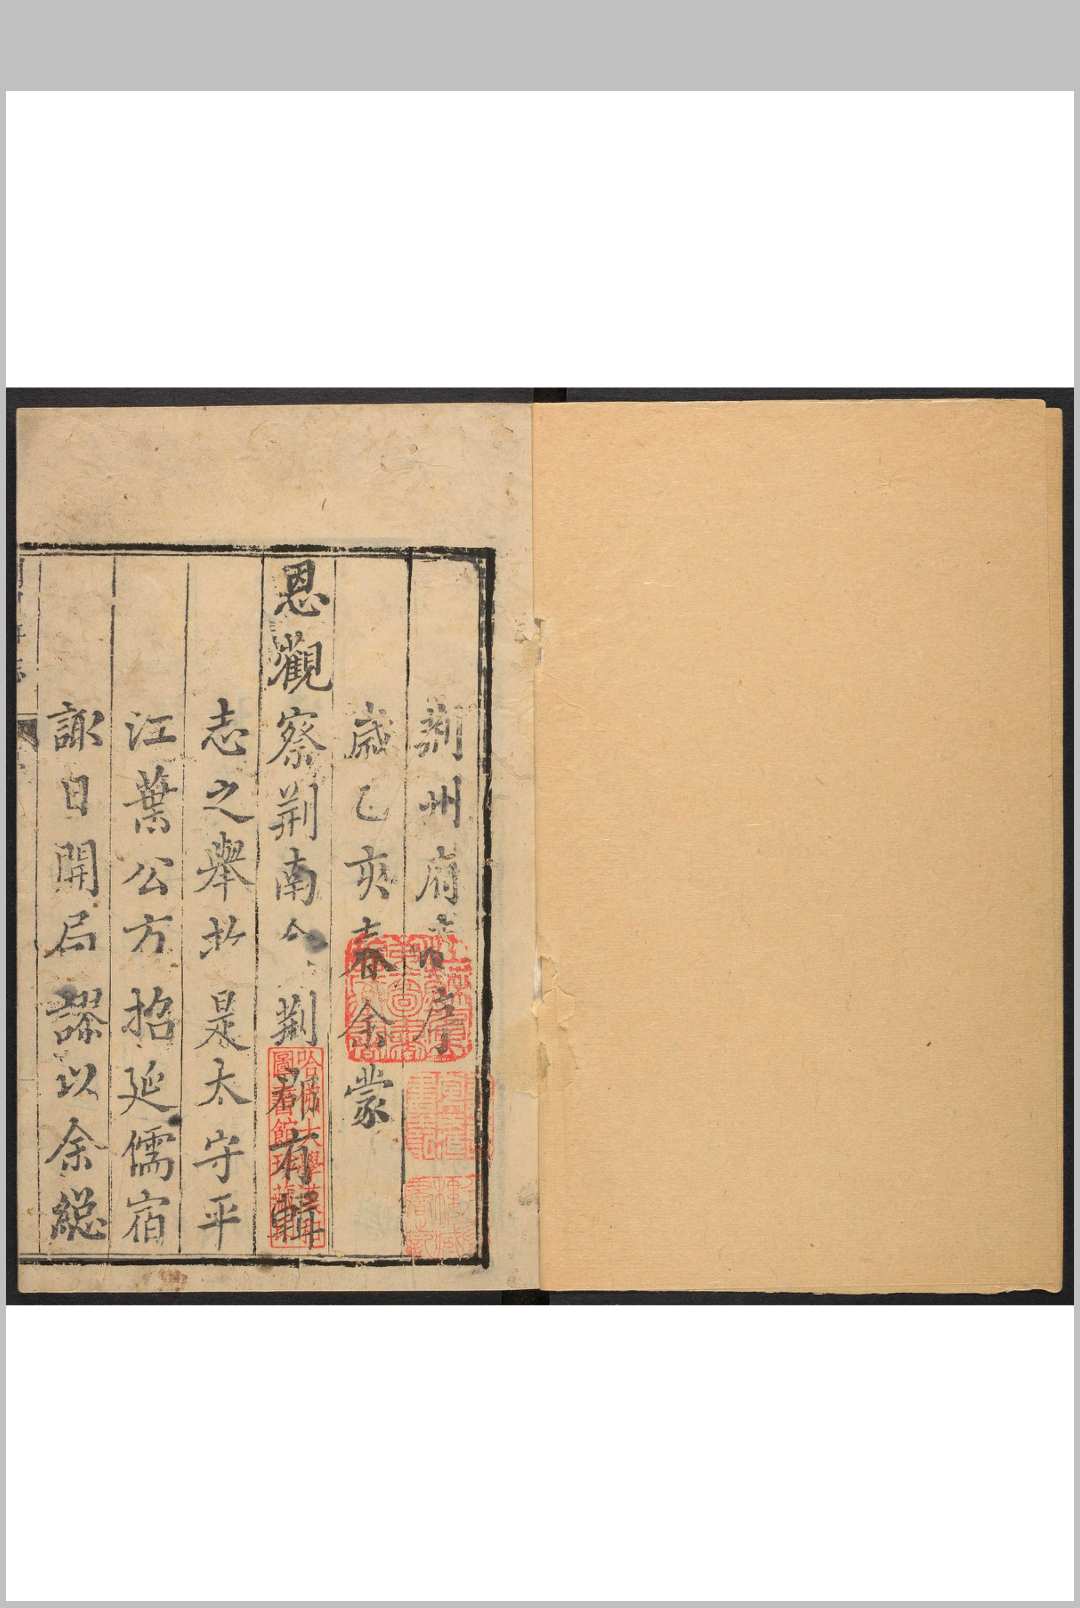 荆州府志序
歲乙亥春余蒙
恩觀察荆南今荆郡有輯
志之舉扵是太守平
江葉公方招延儒宿
諏日開局謬以余総
哈佛大學漢和
圖書館珍藏印